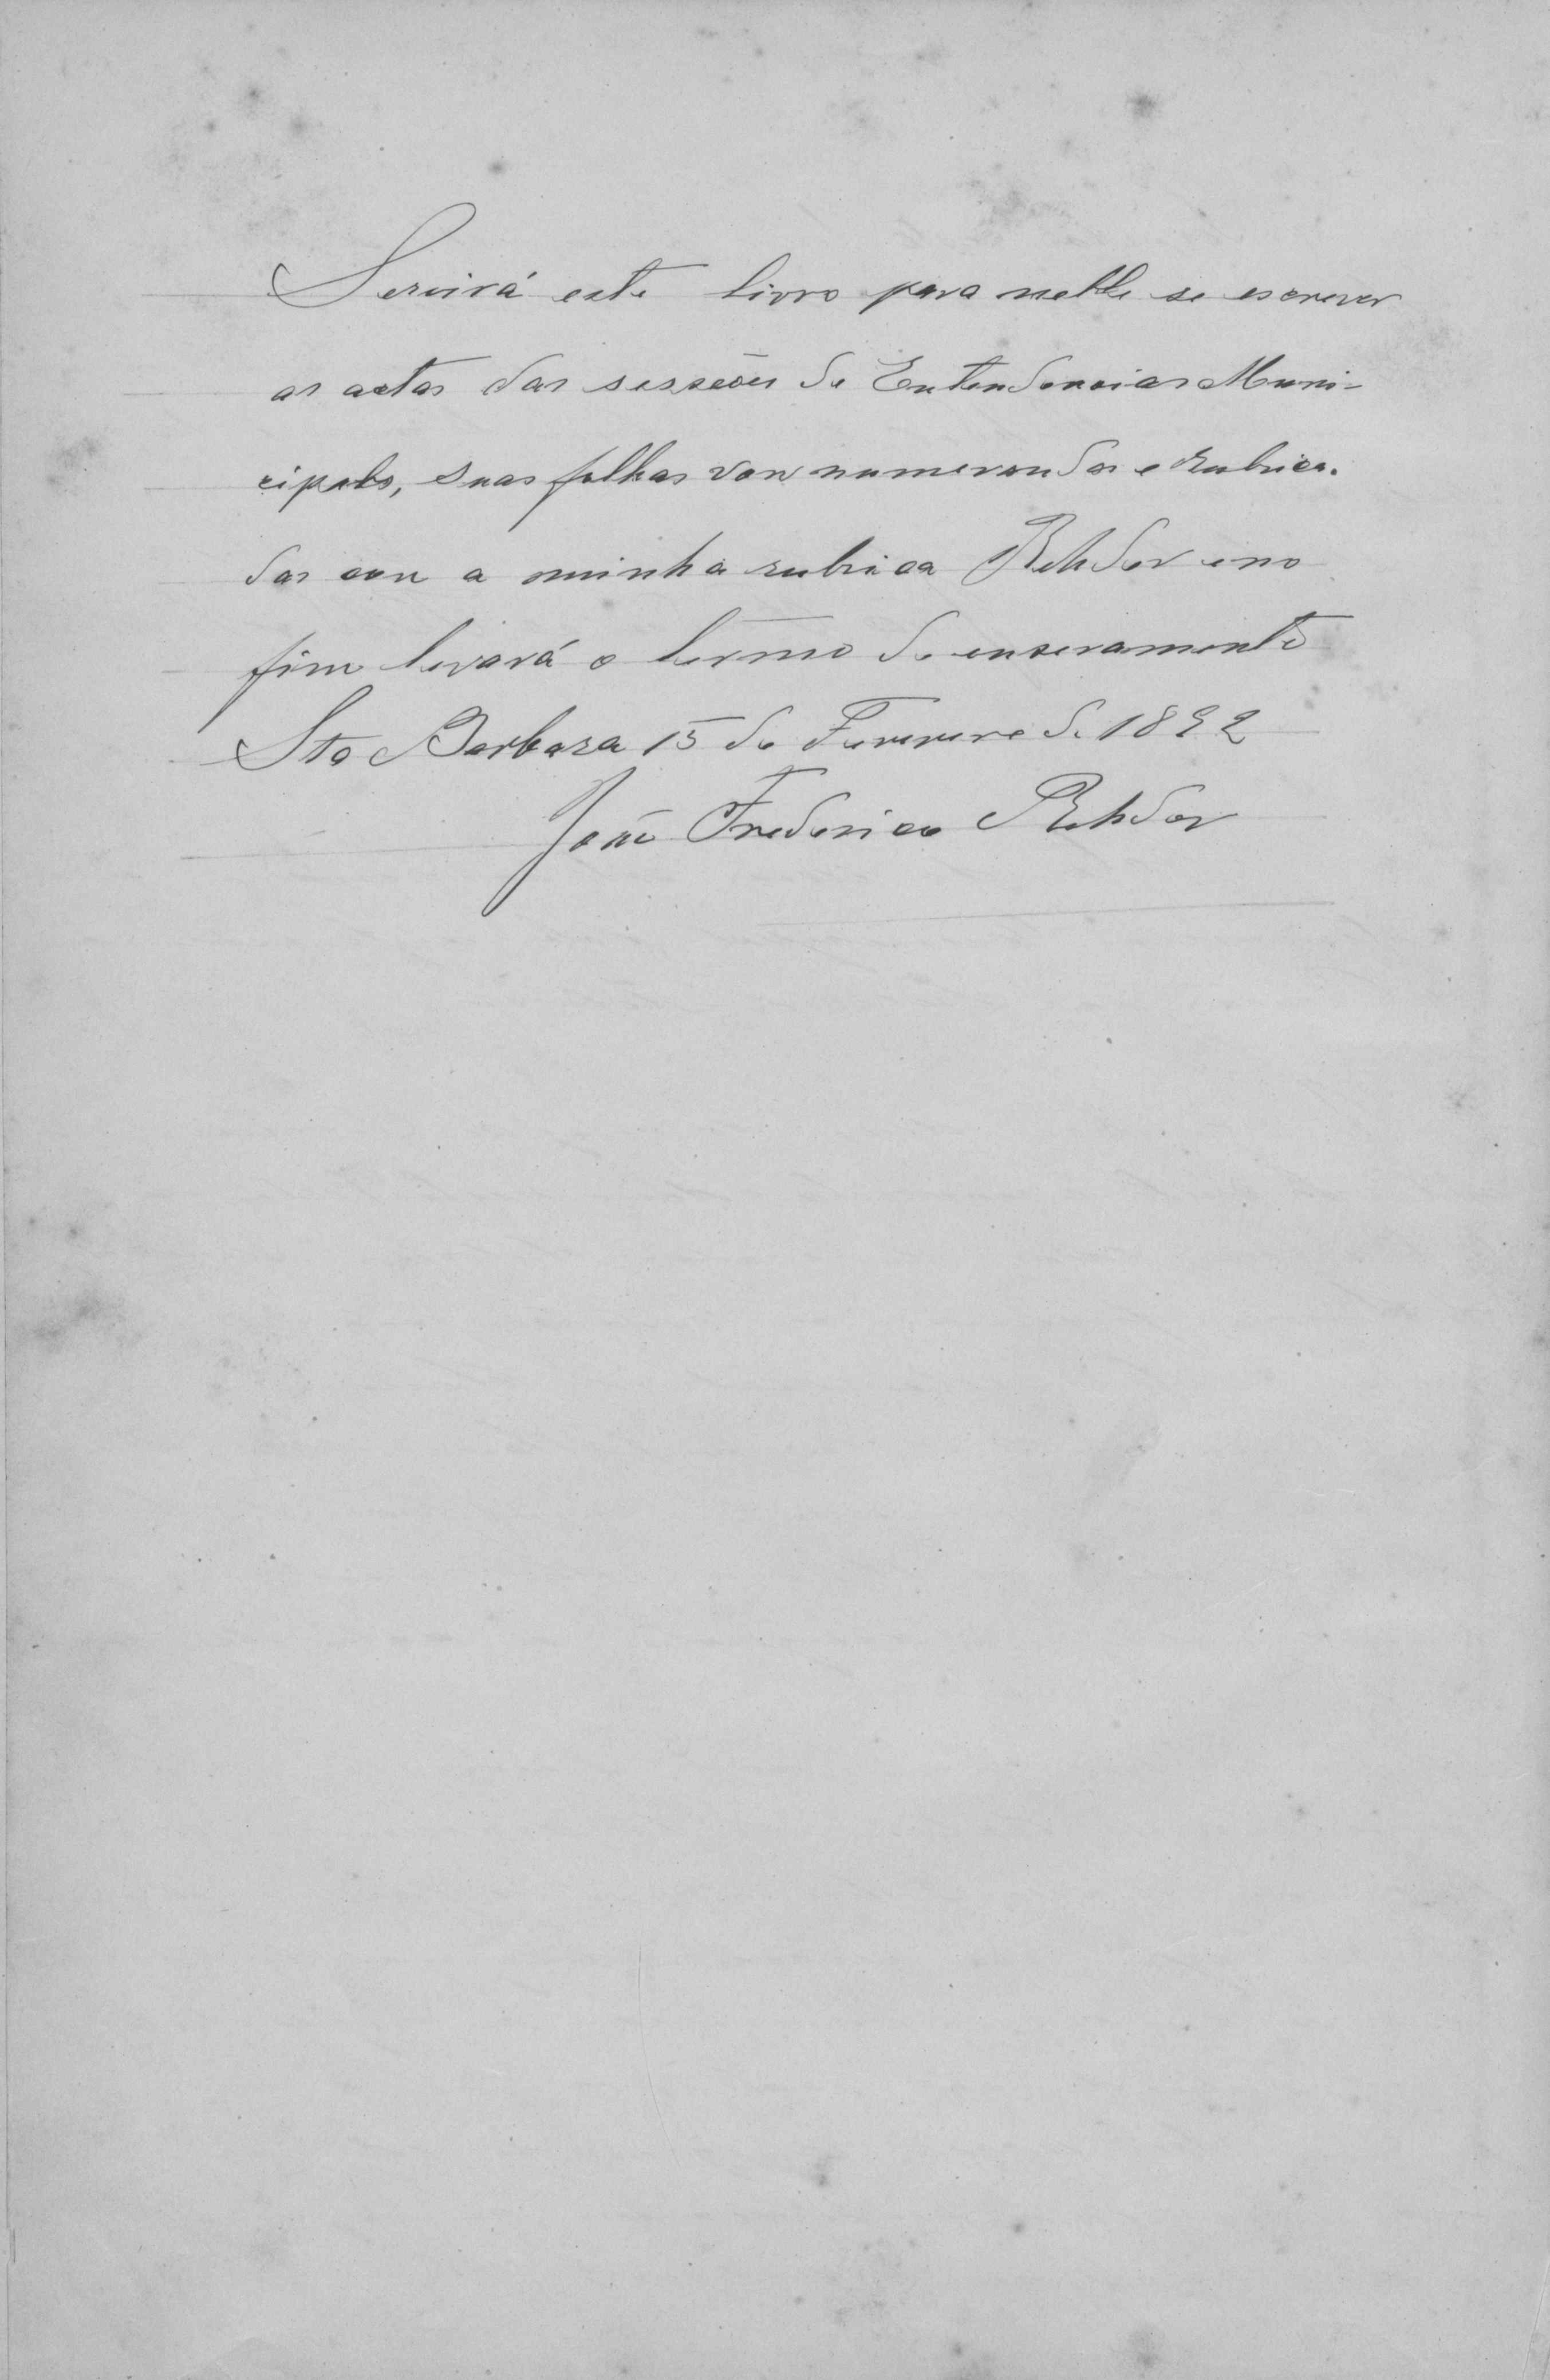 Servirá este livro para nelle se escrever
as actas das sessões de Entendencias Muni-
cipales, suas folhas van numerandas e Rubrica-
das con a minha rubrica Rehder e no
fim levará o termo de enseramento
Sta Barbara 15 de Fevereiro de 1892
João Frederico Rehder